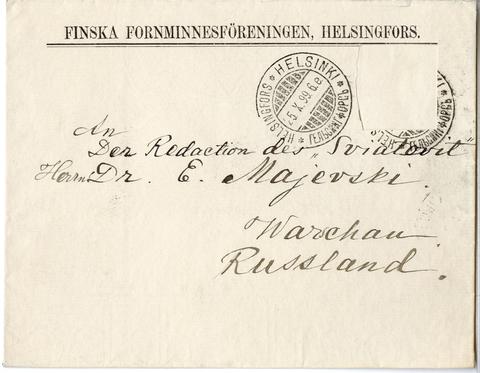 FINSKA FORNMINNESFÖRENINGEN, HELSINGFORS.
HELSINGFORS * HELSINKI * ГЕЛЬСИНГФОРСЪ *
5 X. 99. 6.e
An
Der Redaction des „Sviatovit"
Herrn Dr. E. Majevski.
Warchau
Russland.